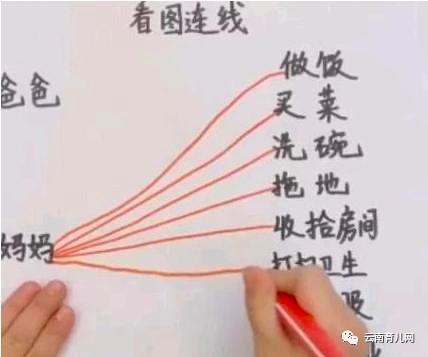 看图连线
做饭
爸爸
买菜
洗碗
拖地
收拾房间
妈妈
卫生
云南育儿网